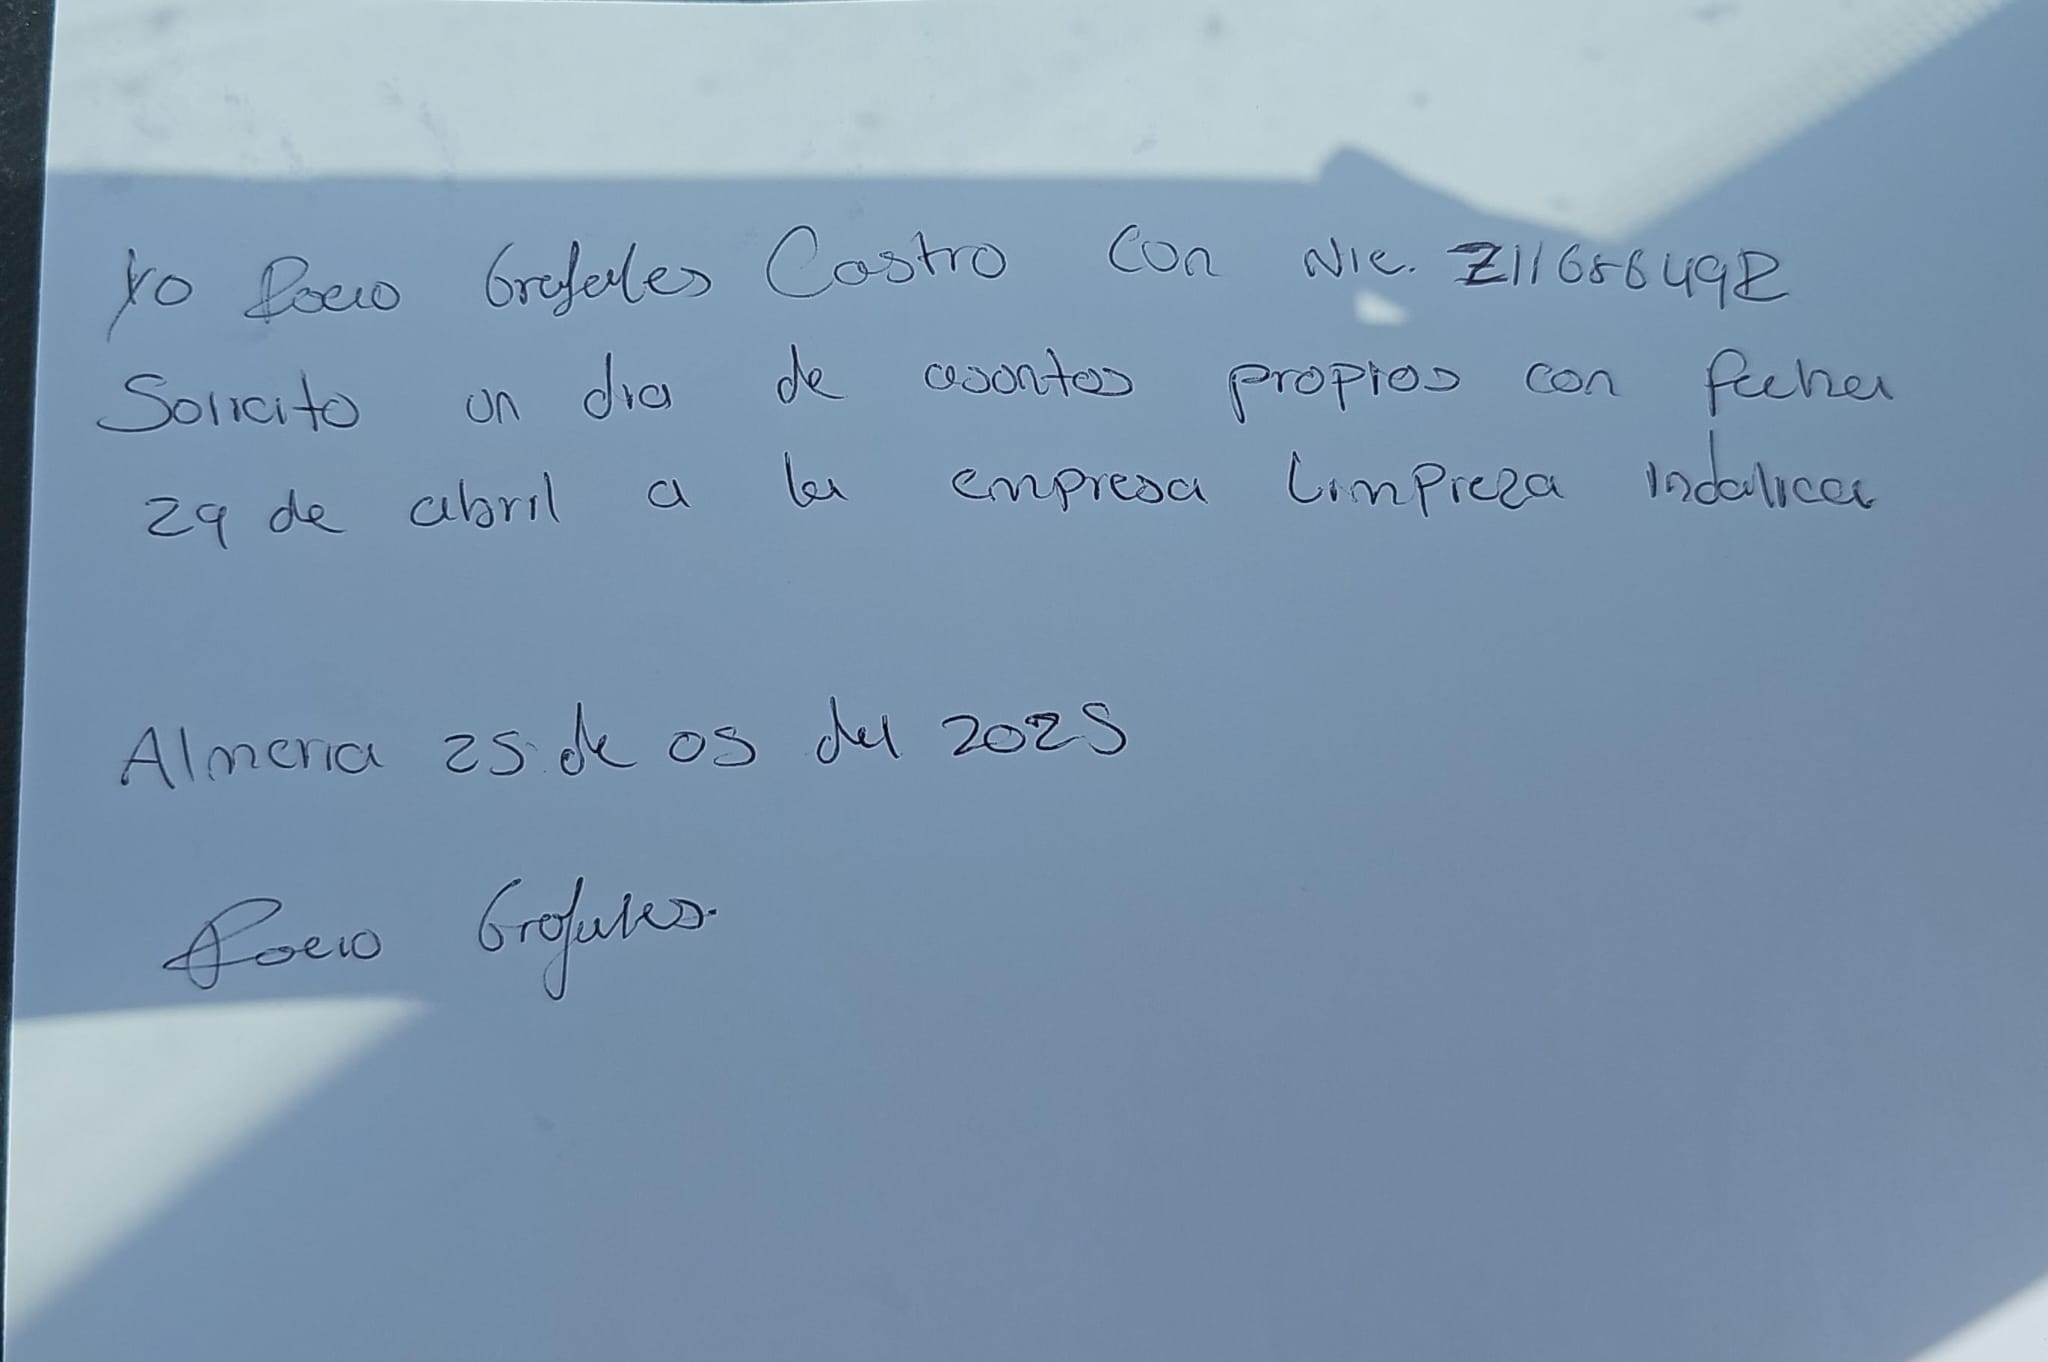 Yo Rocio Grefales Castro con Nie. Z1168649R
Solicito un dia de asontos propios con fecha
29 de abril a la empresa Limpieza Indalica
Almeria 25 de 05 del 2025
Rocio Grefales.